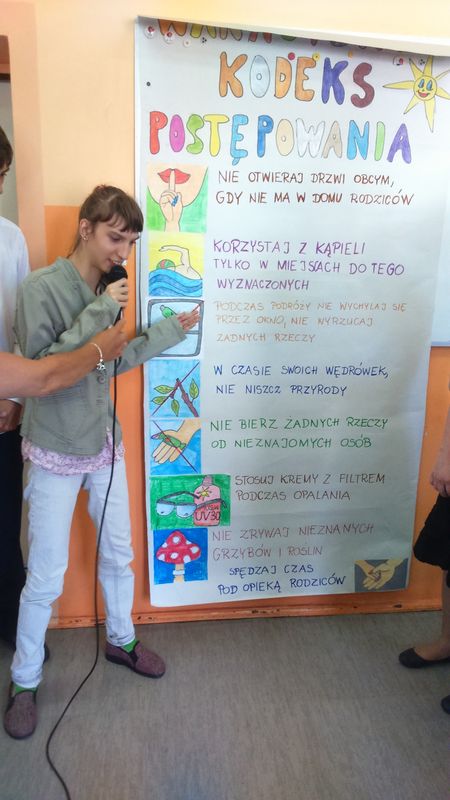 KODEKS
POSTĘPOWANIA
NIE OTWIERAJ DRZWI OBCYM,
GDY NIE MA W DOMU RODZICÓW
KORZYSTAJ Z KĄPIELI
TYLKO W MIEJSCACH DO TEGO
WYZNACZONYCH
PODCZAS PODRÓŻY NIE WYCHYLAJ SIĘ
PRZEZ OKNO, NIE WYRZUCAJ
ŻADNYCH RZECZY
W CZASIE SWOICH WĘDRÓWEK,
NIE NISZCZ PRZYRODY
NIE BIERZ ŻADNYCH RZECZY
OD NIEZNAJOMYCH OSÓB
STOSUJ KREMY Z FILTREM
PODCZAS OPALANIA
UV30
NIE ZRYWAJ NIEZNANYCH
GRZYBÓW I ROŚLIN
SPĘDZAJ CZAS
POD OPIEKĄ RODZICÓW